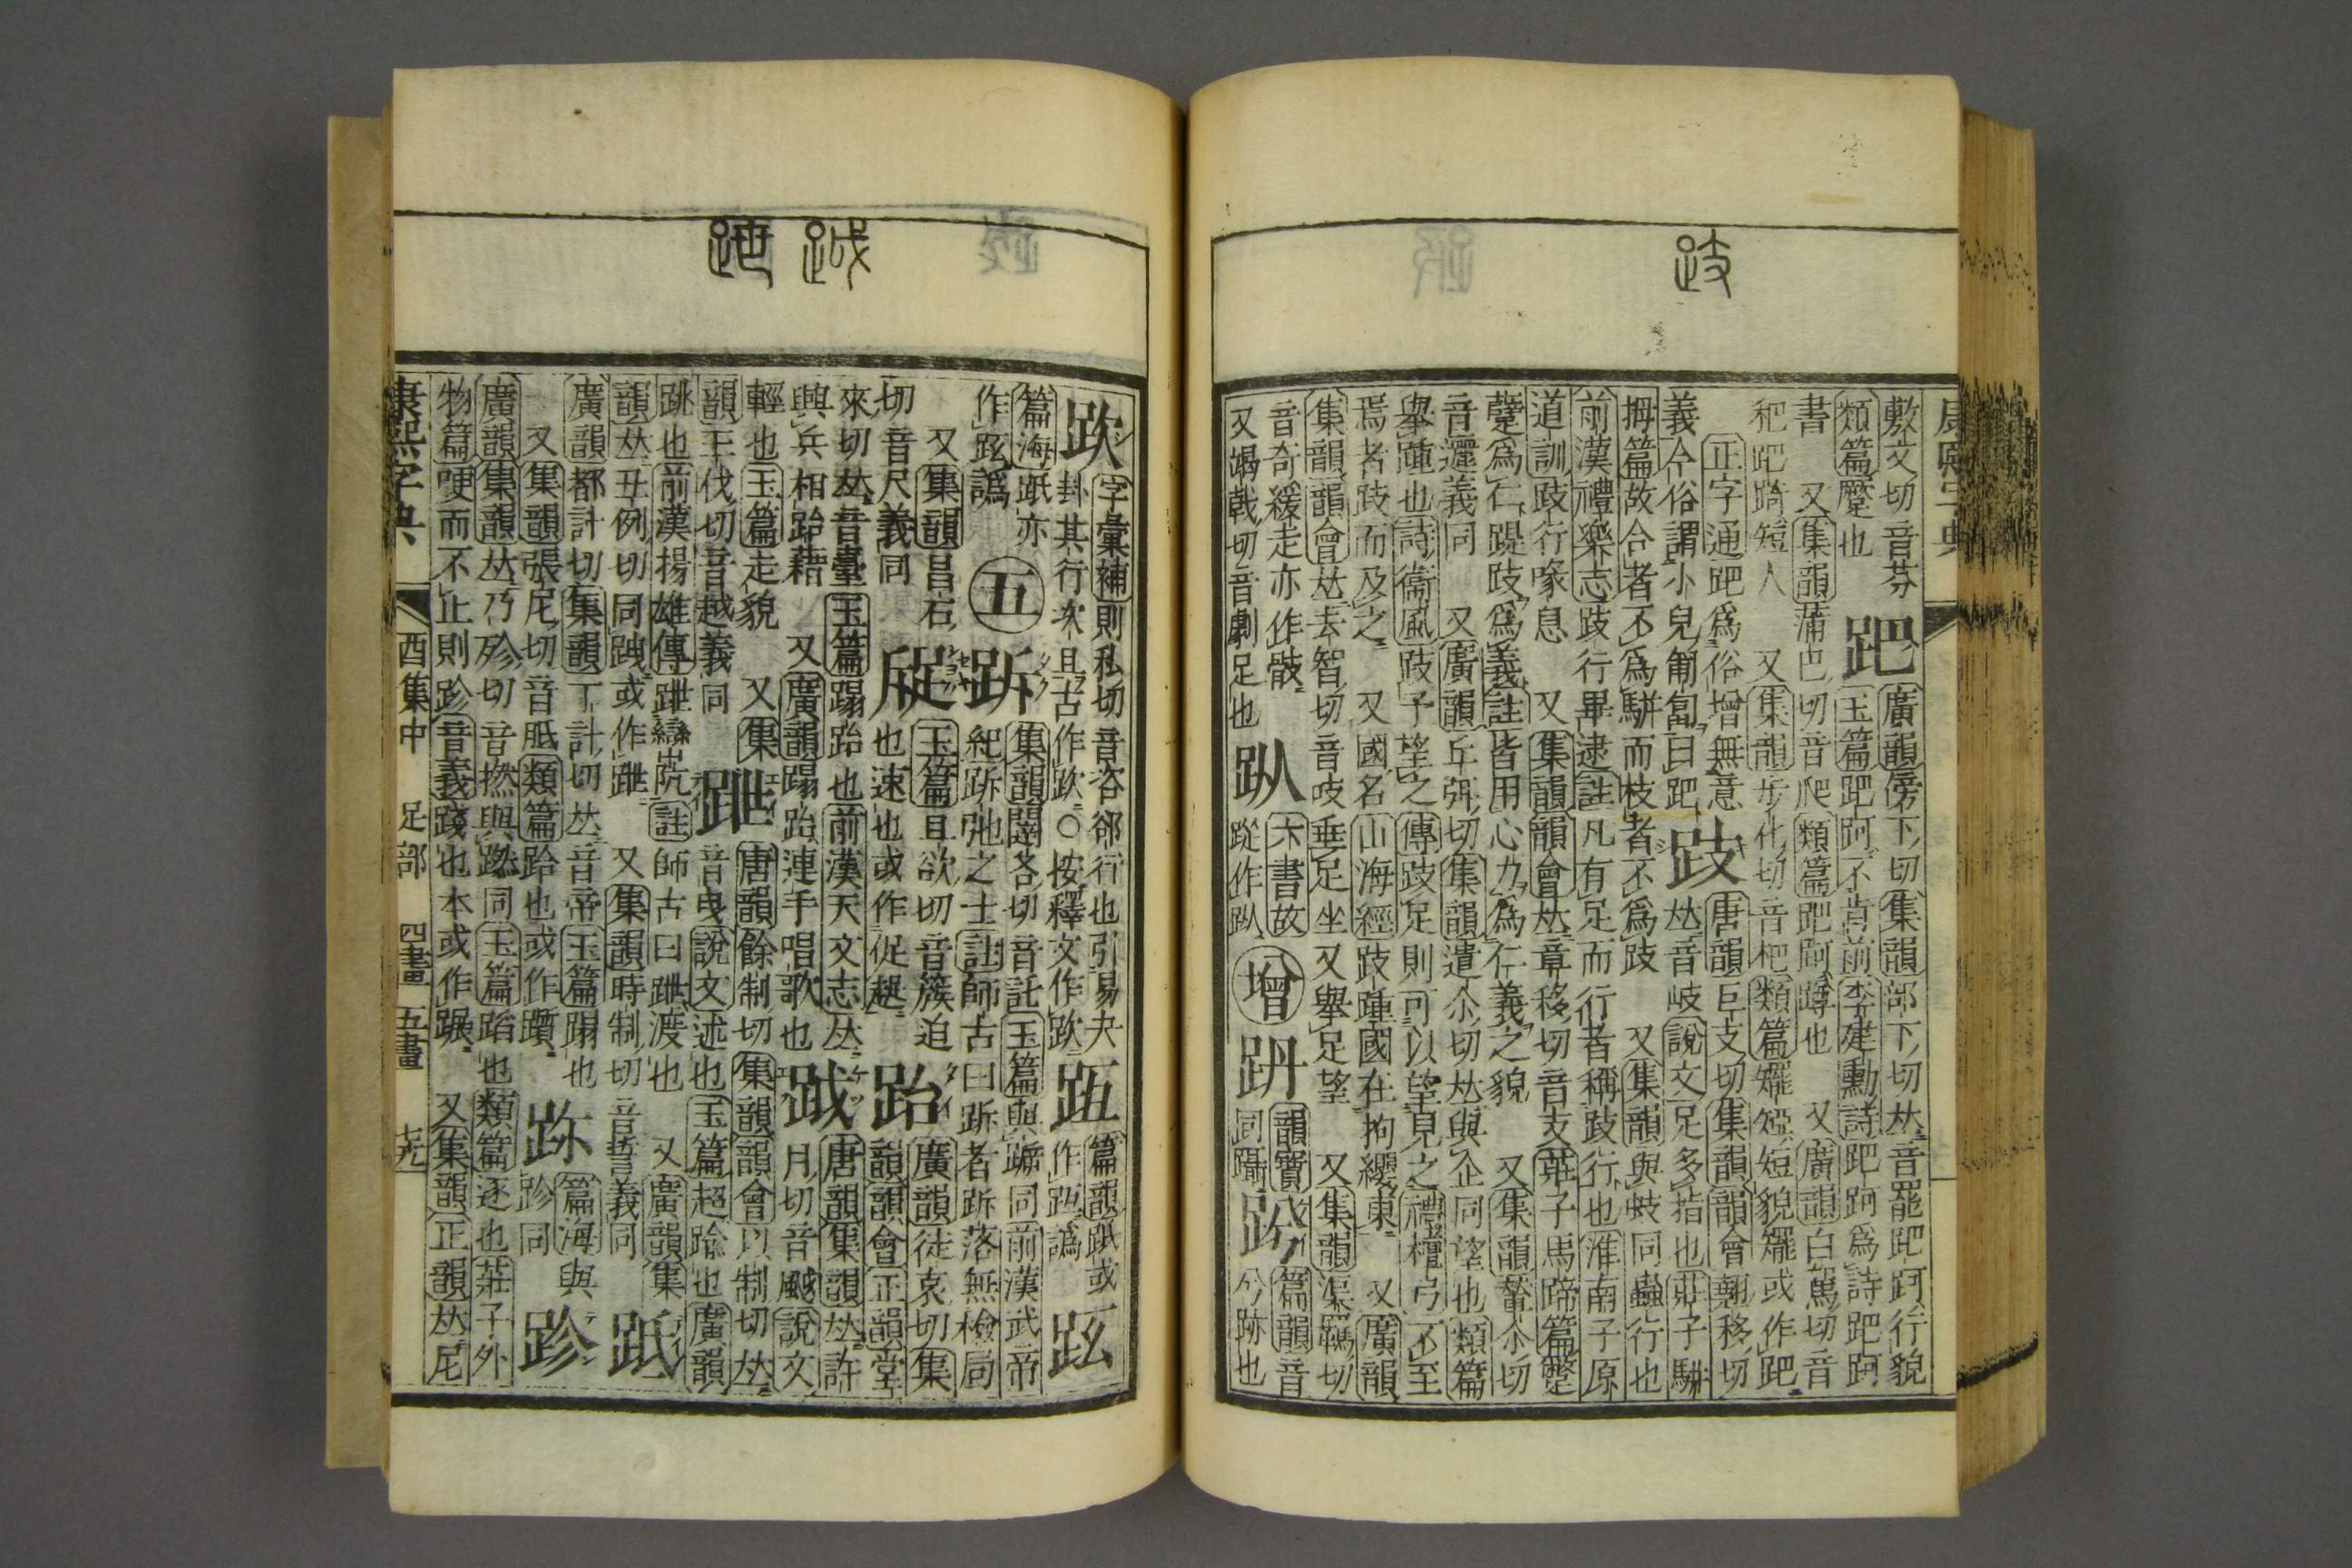 敷文切音芬
類篇蹷也
跁
廣韻傍下切集韻部下切𠀤音罷跁跒行貌
玉篇跁跒不肯前李建勳詩跁跒爲詩跁跒
書
又集韻蒲巴切音爬類篇跁跒蹲也
又廣韻白駕切音
䎱跁踦短人
又集韻步化切音杷類篇䎱䎬短貌䎱或作跁
正字通跁爲俗增無意
義今俗謂小兒匍匐曰跁
跂
唐韻巨支切集韻韻會翹移切
𠀤音岐說文足多指也莊子駢
拇篇故合者不爲駢而枝者不爲跂
又集韻與蚑同蟲行也
前漢禮樂志跂行畢逮註凡有足而行者稱跂行也淮南子原
道訓跂行喙息
又集韻韻會𠀤章移切音支莊子馬蹄篇蹩
躠爲仁踶跂爲義註皆用心力爲仁義之貌
又集韻輦尒切
音邐義同
又廣韻丘弭切集韻遣尒切𠀤與企同望也類篇
舉踵也詩衞風跂予望之傳跂足則可以望見之禮檀弓不至
焉者跂而及之
又國名山海經跂踵國在拘纓東
又廣韻
集韻韻會𠀤去智切音吱垂足坐又舉足望
又集韻渠羈切
音奇緩走亦作䟸
又竭戟切音劇足也
趴
木書故
䟱作趴
增
跀
韻寶
同躡
䟢
篇韻音
兮跡也
康熙字典
跂
䟣
字彙補則私切音咨郤行也引易夬
卦其行次且古作䟣○按釋文作䟣
䟡
篇韻䟡或
作䟡譌
䟮
篇海䟡亦
作䟮譌
五
䟽
集韻闥各切音託玉篇與跅同前漢武帝
紀跅弛之士註師古曰跅者跅落無檢局
又集韻昌石
切音尺義同
𨀈
玉篇且欲切音蔟迫
也速也或作促趗
跆
廣韻徒哀切集
韻韻會正韻堂
來切𠀤音臺玉篇蹋跆也前漢天文志𠀤
興兵相跆藉
又廣韻蹋跆連手唱歌也
跋
唐韻集韻𠀤許
月切音颰說文
輕也玉篇走貌
又集
韻王伐切音越義同
跩
唐韻餘制切集韻韻會以制切𠀤
音曳說文述也玉篇超踰也廣韻
跳也前漢揚雄傳跇巒阬註師古曰跇渡也
又廣韻集
韻𠀤丑例切同跩或作跇
又集韻時制切音誓義同
䟡
廣韻都計切集韻丁計切𠀤音帝玉篇蹋也
又集韻張尼切音胝類篇跆也或作躓
跈
篇海與
跈同
跈
廣韻集韻𠀤乃殄切音撚與蹨同玉篇蹈也類篇逐也莊子外
物篇哽而不止則跈音義踐也本或作蹍
又集韻正韻𠀤尼
康熙字典
酉集中
足部
四畫
五畫
䟠
跇